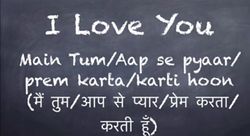 I Love You
Main Tum/Aap se pyaar/
prem karta/karti hoon
(मैं तुम/आप से प्यार/प्रेम करता/
करती हूँ)